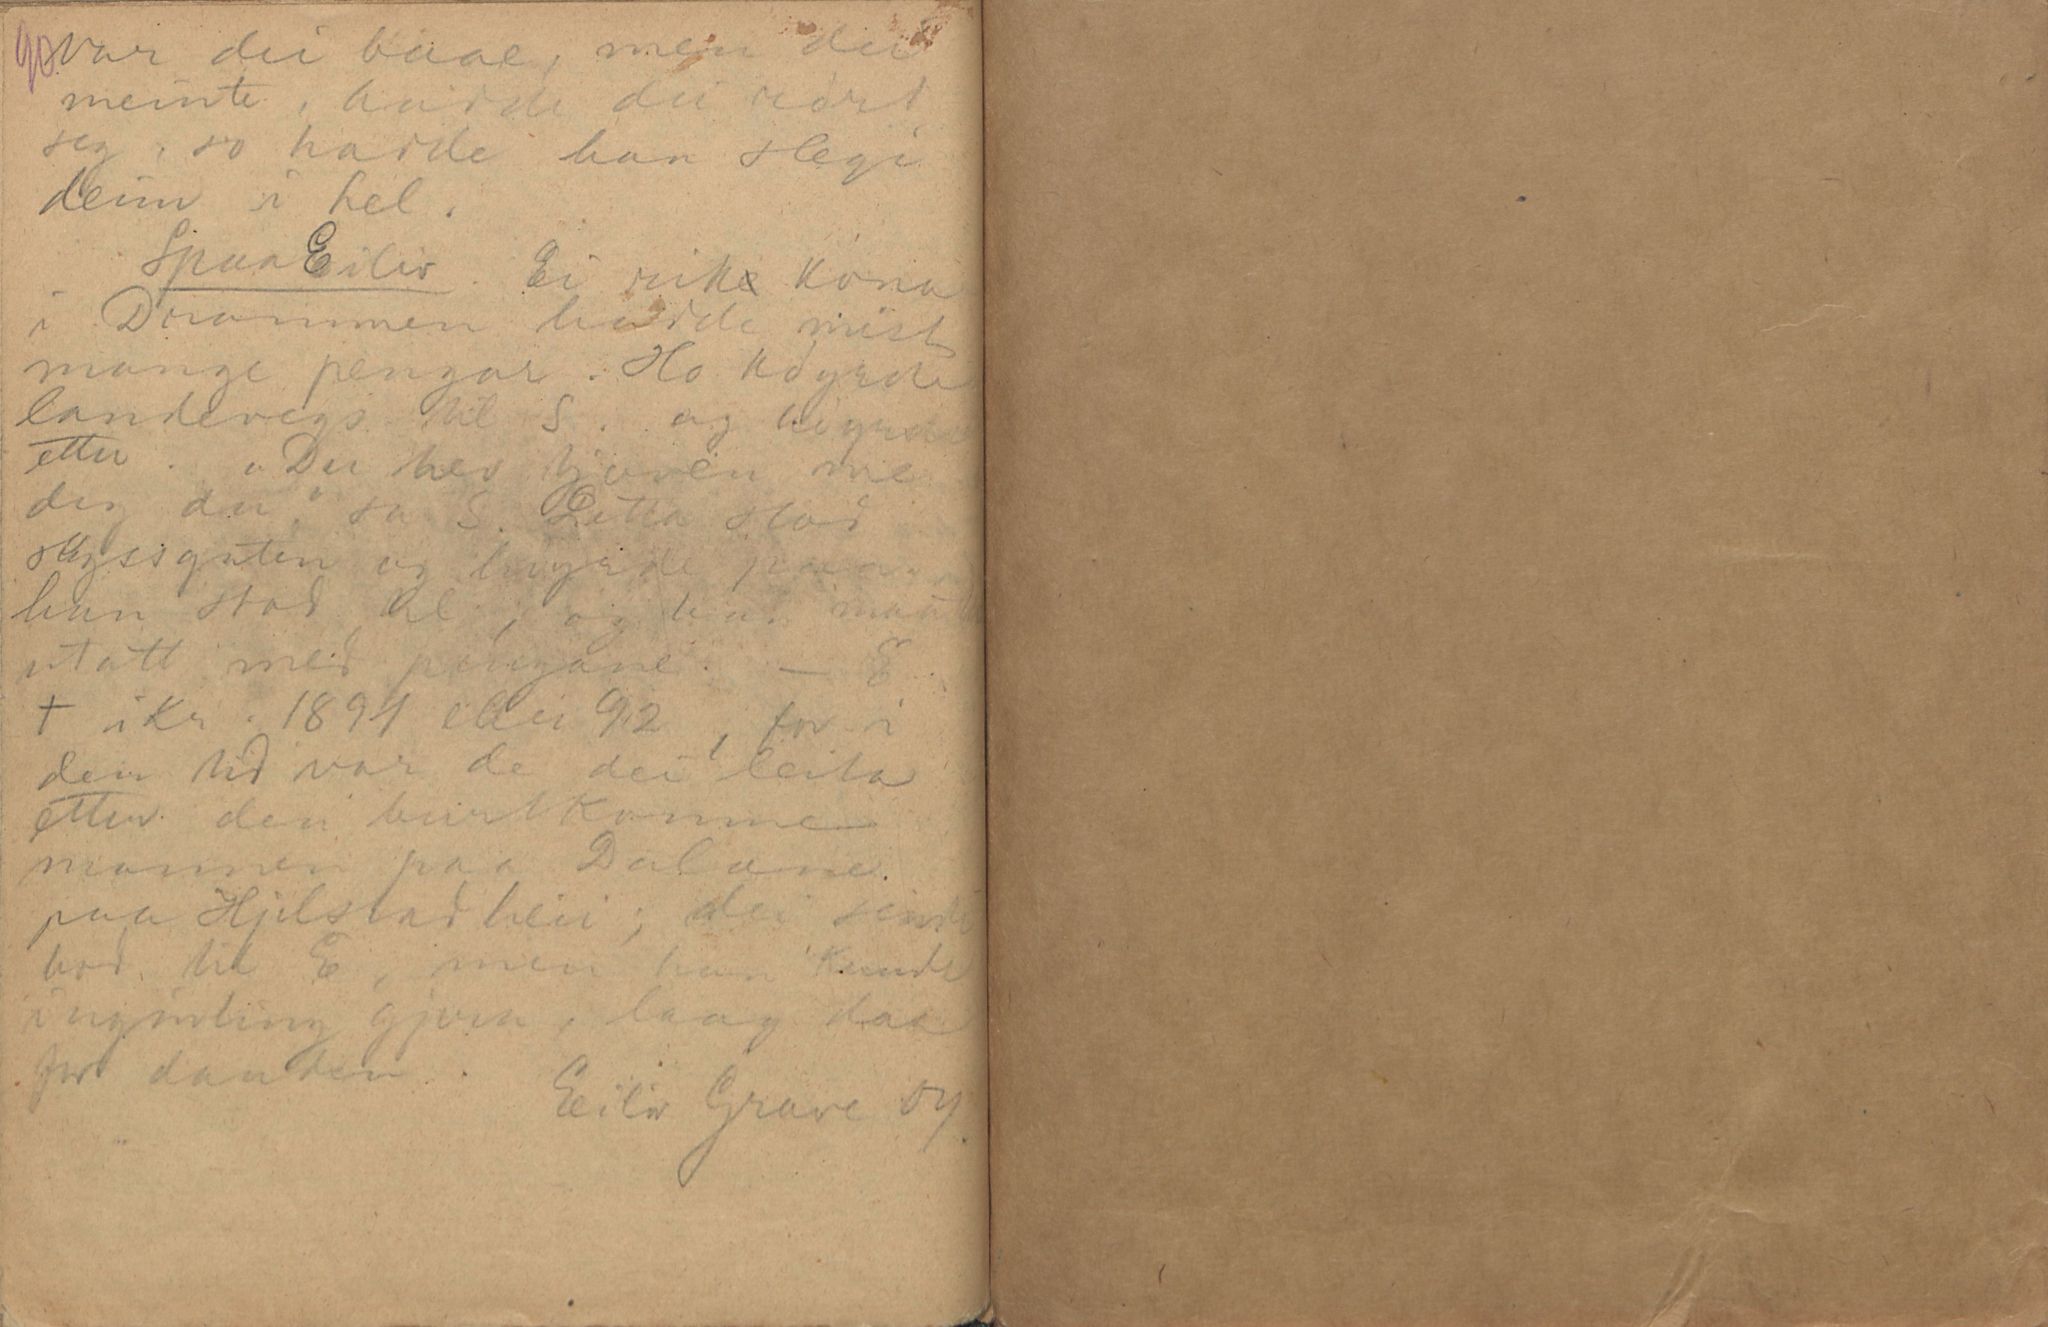 90
var dei baae, men dei
meinte, hadde dei rört
seg, so hadde han slegi
deim i hel.
SpaaEiliv. Ei rik kona
i Drammen hadde mist
mange pengar. Ho köyrde
landevegs til S. og höyrde
etter. "Du hev tjuven me
deg du," sa S. Detta stod
skyssguten og höyrde paa
han stod til, og han maatte
utatt med pengane. — E.
† ikr. 1891 elle 92, for i
den tid var de dei leita
etter den burtkomne
mannen paa Dalane
paa Hjelstadheii; dei sende
bod til E, men han kunde
ingenting gjera, laag daa
for dauden.
Eiliv Grave